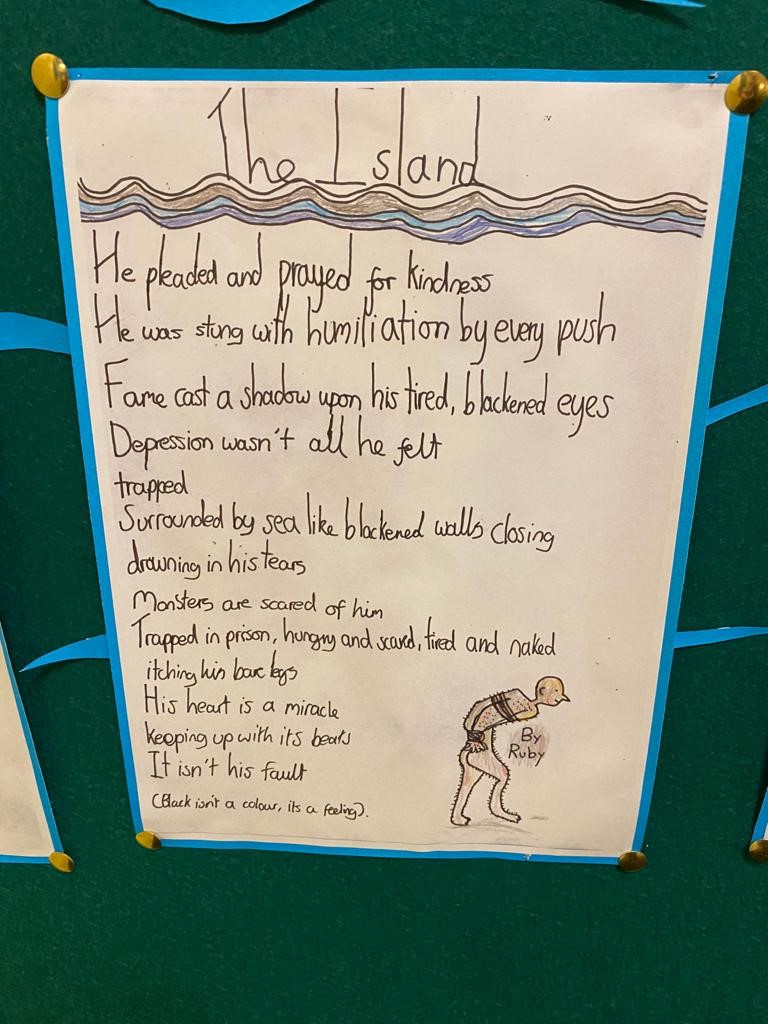 The Island
He pleaded and prayed for kindness
He was stung with humiliation by every push
Fame cast a shadow upon his tired, blackened eyes
Depression wasn't all he felt
trapped
Surrounded by sea like blackened walls closing
drowning in his tears
Monsters are scared of him
Trapped in prison, hungry and scared, tired and naked
itching his bare legs
His heart is a miracle
keeping up with its beats
It isn't his fault
(Black isn't a colour, its a feeling).
By
Ruby